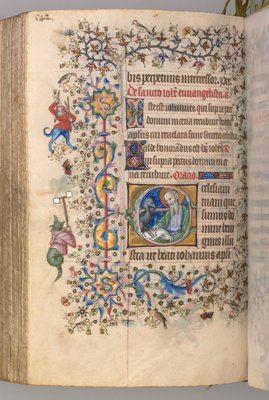 bis perpetuus intercessor. Per
De sancto iohe euuangelista. a
Iste est iohannes qui supra pec
domini in cena recubuit beat
aplus cui reuelata sunt secreta celestia
Valde honoradus est bts iohes R
Qui supra pectus domini in ce
na recubuit. Oratio.
Ecclesiam
tuam que
sumus do
mine beni
gnus illu
stra ut beati iohannis apli